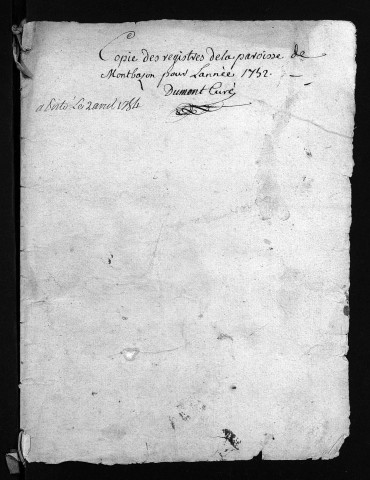 Copie des registres dela paroisse de
Montbazon pour Lannée 1752
Dumont Curé
Le 2 avril 1754